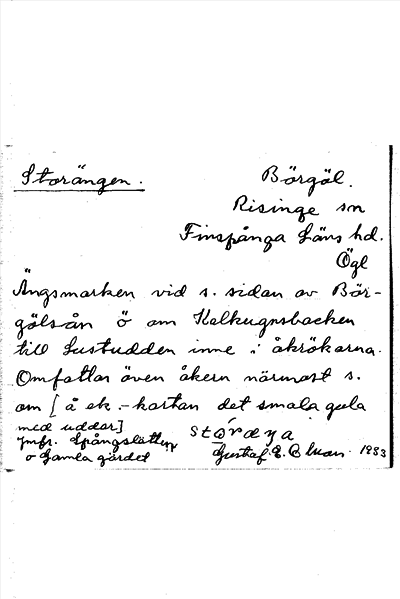 Storängen.
Börgöl.
Risinge sn
Finspånga Läns hd.
Ögl
Ängsmarken vid s. sidan av Bör-
gölsån ö om Kalkugnsbacken
till Lustudden inne i åkrökarna.
Omfattar även åkern närmast s.
om [å ek.-kartan det smala gula
med uddar]
Jmfr. Spångslätten
o Gamla gärdet
Gustaf. E.
1933